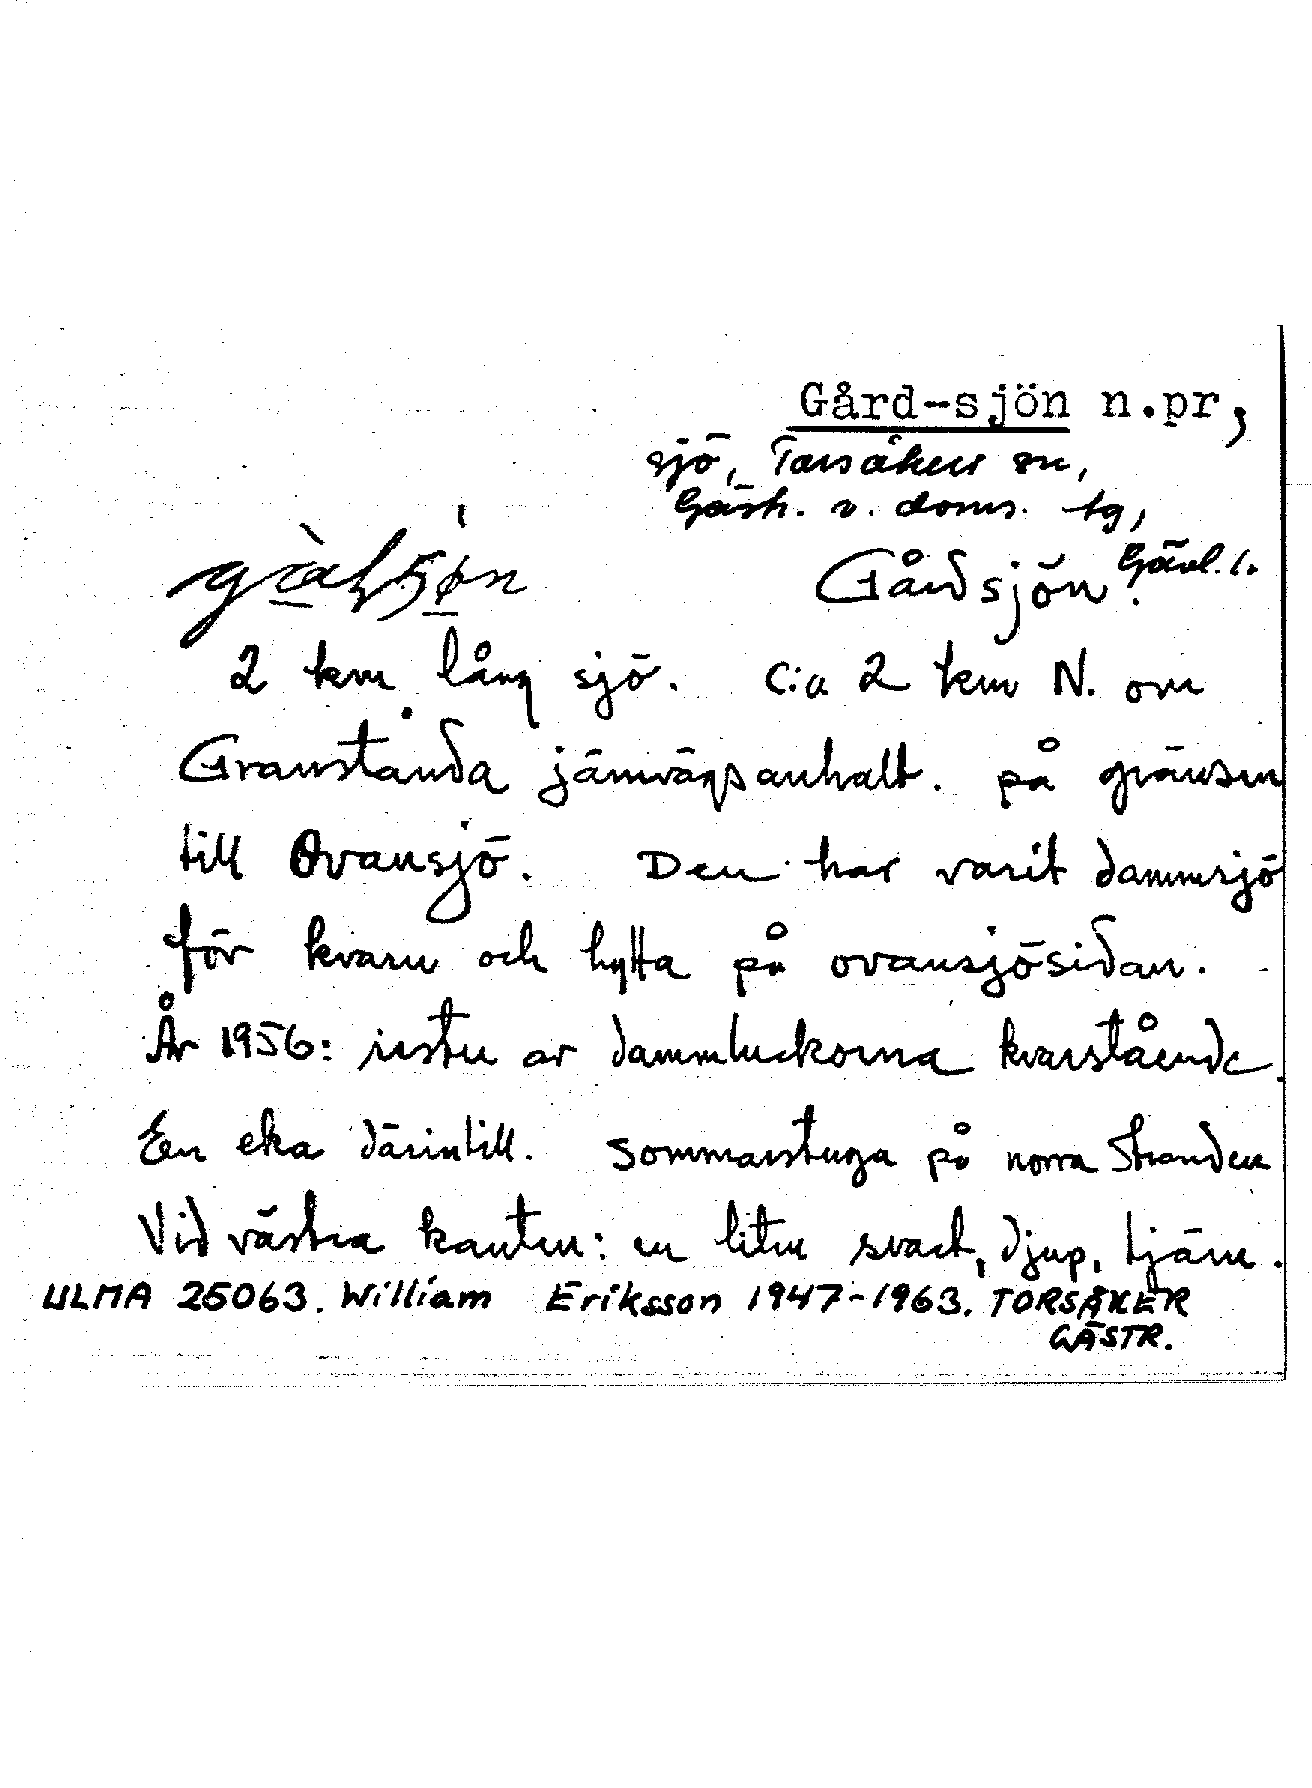 Gård-sjön n.pr,
sjö, Torsåkers sn,
Gästr. v. doms. tg,
Gävl. l.
Gårdsjön.
2 km lång sjö. C:a 2 km N. om
Granstanda järnvägsanhalt. på gränsen
till Ovansjö. Den har varit dammsjö
för kvarn och hytta på ovansjösidan.
År 1956: rester av dammluckorna kvarstående.
En eka därintill. Sommarstuga på norra stranden
Vid västra kanten: en liten svart, djup, tjärn.
ULMA 25063. William Eriksson 1947-1963. TORSÅKER
GÄSTR.